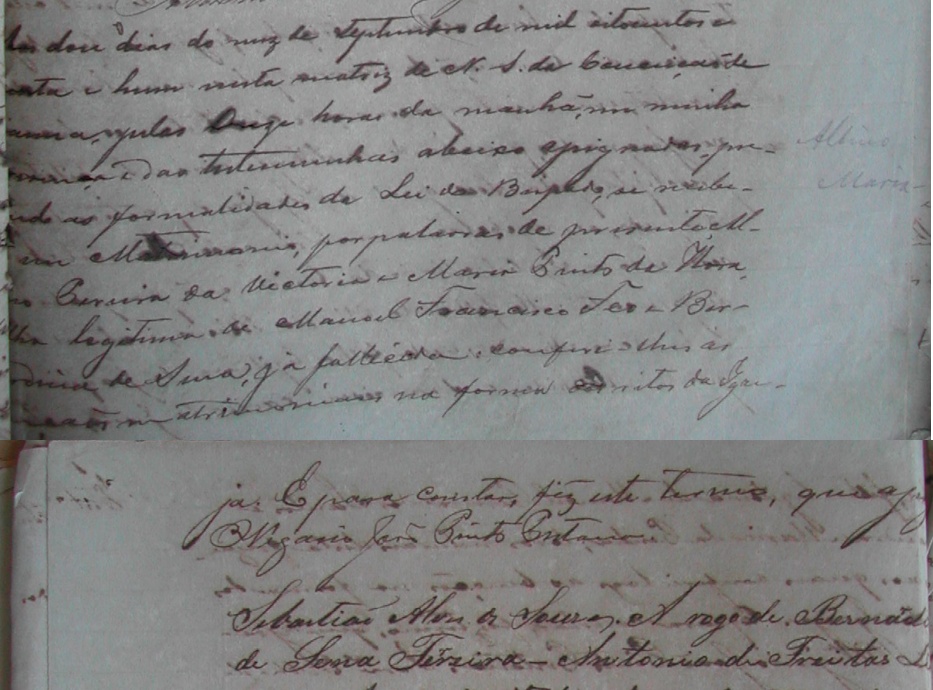 dose dias do mez de Septembro de mil oitocentos e
e hum nesta matriz de N. S. da Conceição de
pelas Onze horas da manhã, em minha
e das testemunhas abaixo assignadas, pre-
as formalidades da Lei do Bispado, se recebe-
em Matrimonio, por palavras de presente, Al-
Pereira da Victoria e Maria Pinto da Hora,
legitima de Manoel Francisco e Ber-
de Sena, já fallecida: conferi-lhes as
matrimoniaes na forma dos ritos da Igre-
Albino
Maria
ja. E para constar, fiz este termo, que
O Vigario José Pinto
Sebastião Alves de Souza. A rogo de Bernard
de Sena Ferreira - Antonio de Freitas